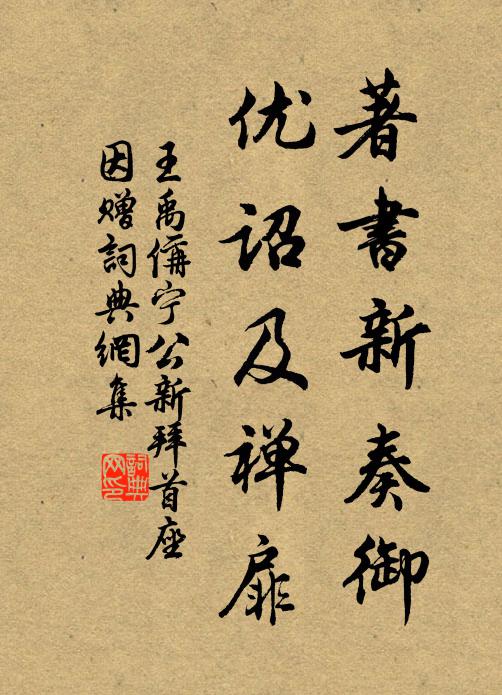 著書新奏御
优诏及禅扉
王禹偁宁公新拜首座
因赠詞典網集
詞典
网印